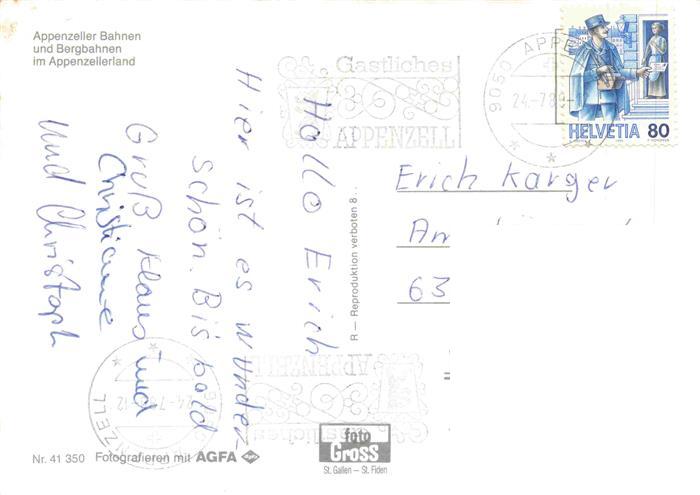 Appenzeller Bahnen
und Bergbahnen
im Appenzellerland
Hallo Erich
Hier ist es wunder-
schön. Bis bald
Gruß Klaus und
Christiane
und Christoph
Gastliches
APPENZELL
9050 APPENZELL
24.-7.89
HELVETIA 80
Erich Karger
Am
63
R — Reproduktion verboten 8..
APPENZELL
Gastliches
24.-7.8 -12
APPENZELL
Nr. 41 350 Fotografieren mit AGFA
foto
Gross
St. Gallen – St. Fiden